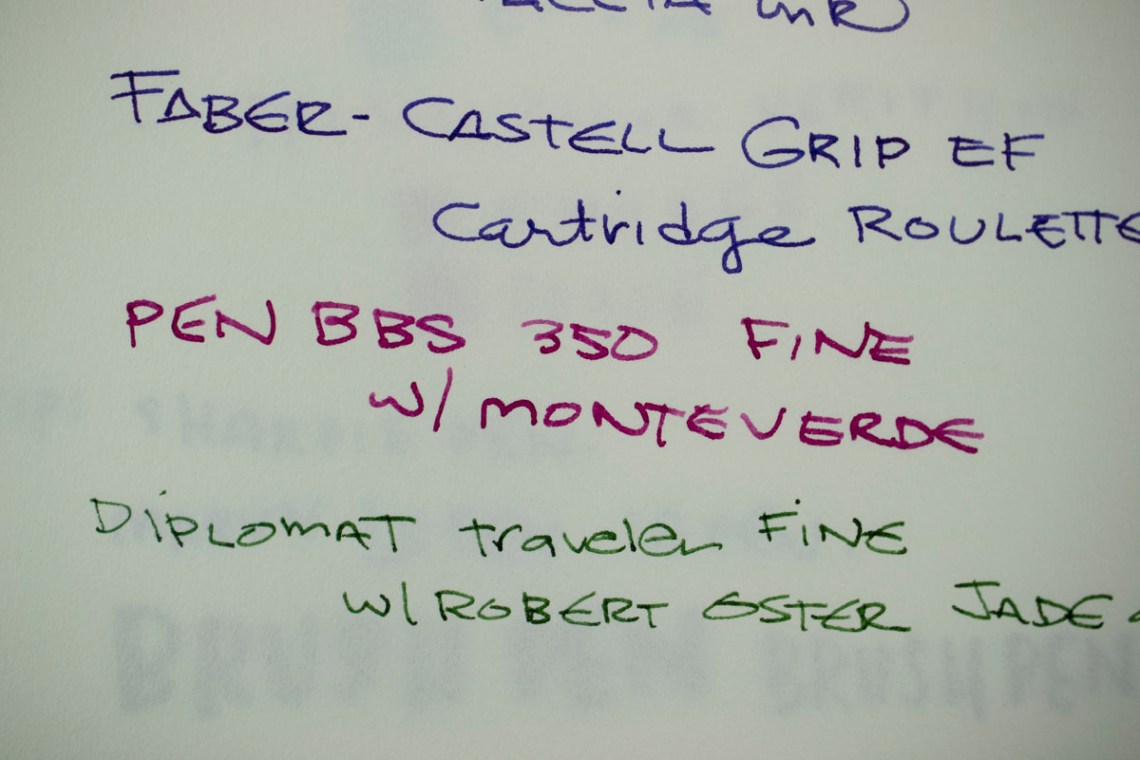 INK
FABER-CASTELL GRIP EF
Cartridge ROULETTE
PEN BBS 350 FINE
W/ MONTEVERDE
DIPLOMAT traveler FINE
W/ ROBERT OSTER JADE
BRUSH PEN BRUSH PEN